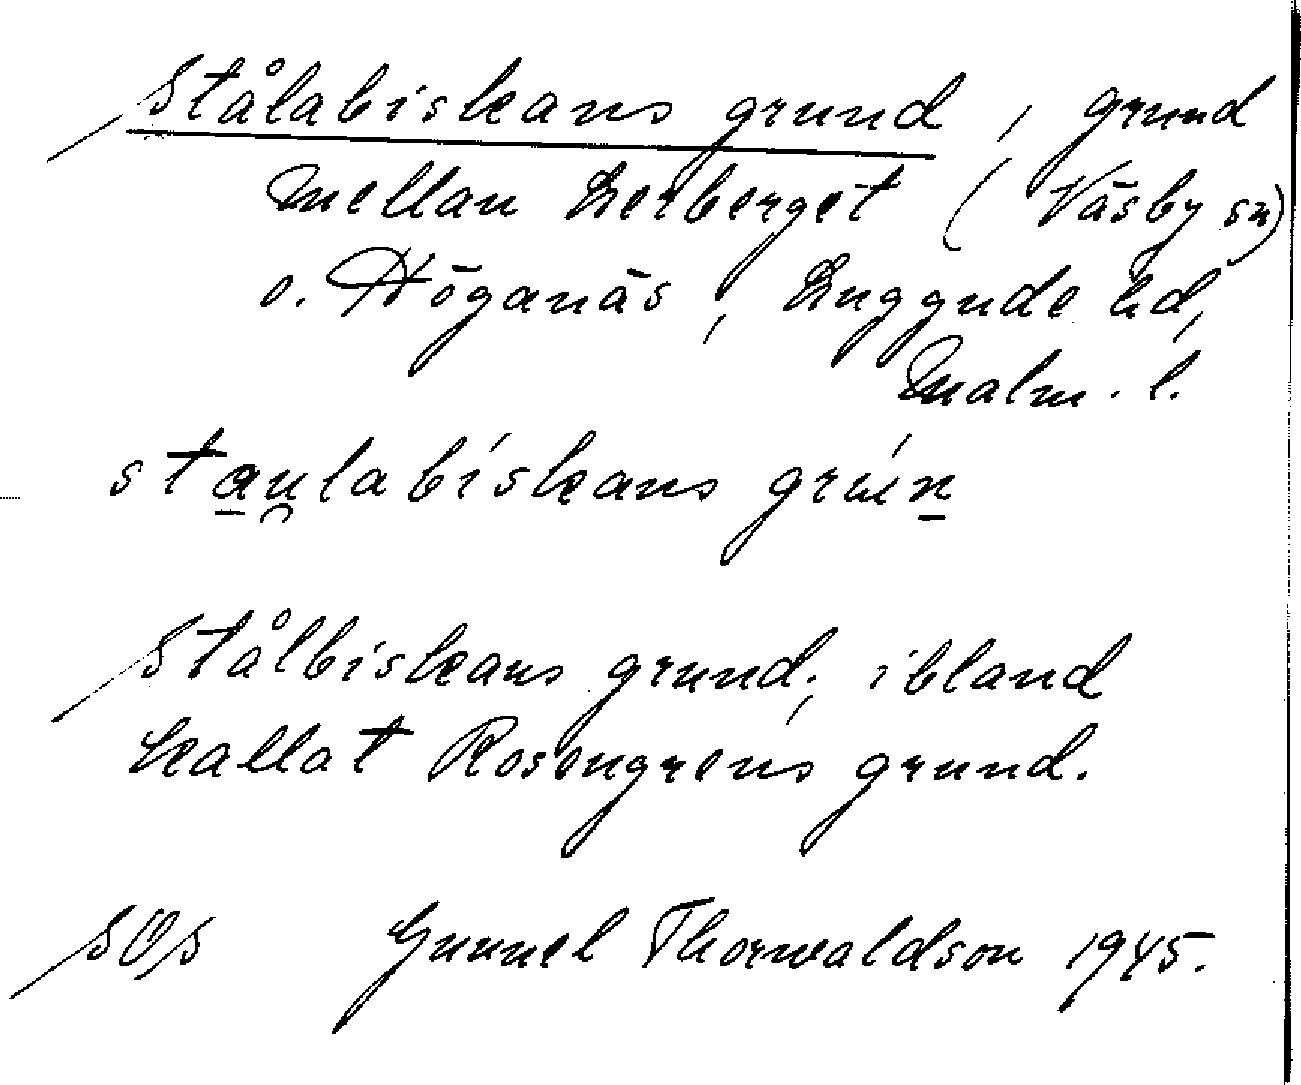 Stålabiskans grund, grund
mellan Lerberget (Väsby sn)
o. Höganäs, Luggude hd,
Malm. l.
sta̲u̯labískans grún̲
Stålbiskans grund; ibland
kallat Rosengrens grund.
SOS Gunnel Thorwaldson 1945.